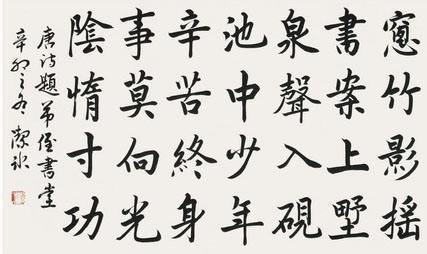 窻竹影搖
書案上墅
泉聲入硯
池中少年
辛苦終身
事莫向光
陰惰寸功
唐诗題弟侄書堂
辛卯之冬